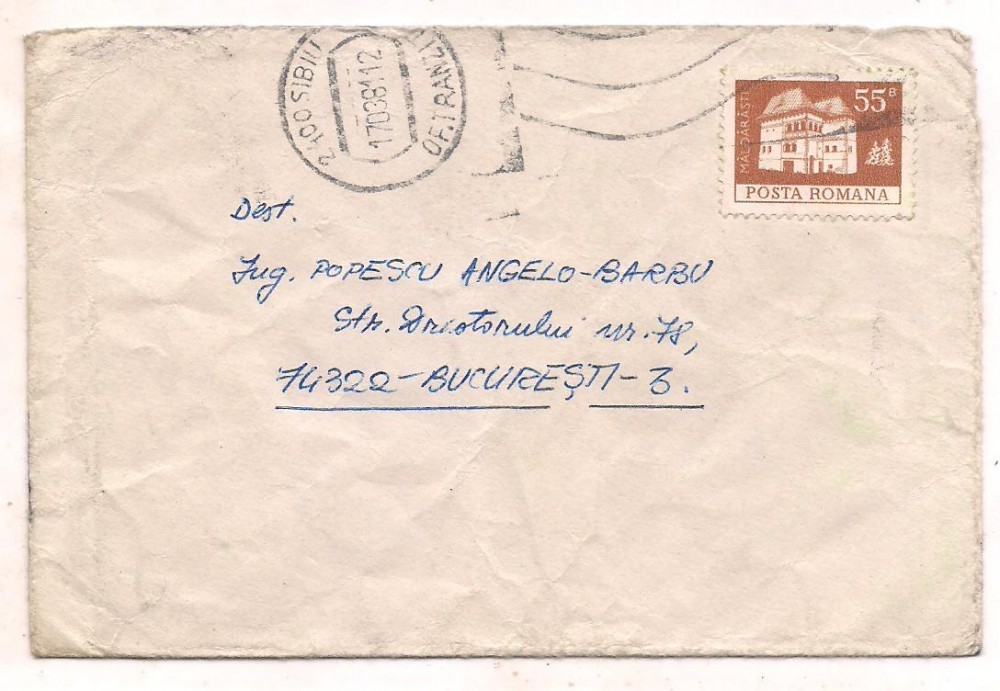 2400 SIBIU
17038112
OF.TRANZIT
MĂLDĂRĂȘTI
55 B
POSTA ROMANA
Dest.
Ing. POPESCU ANGELO-BARBU
Str. Dristorului nr. 78,
74322-BUCUREȘTI-3.